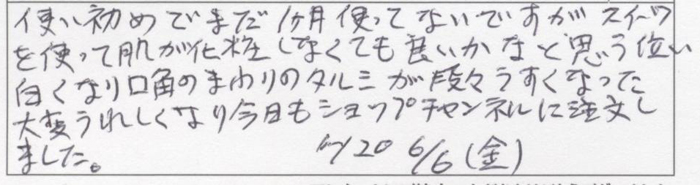 使い初めでまだ1ヶ月使ってないですが スイーツ
を使って肌が化粧しなくても良いかなと思う位い
白くなり口角のまわりのタルミが段々うすくなった
大変うれしくなり今日もショップチャンネルに注文し
ました。 20 6/6(金)